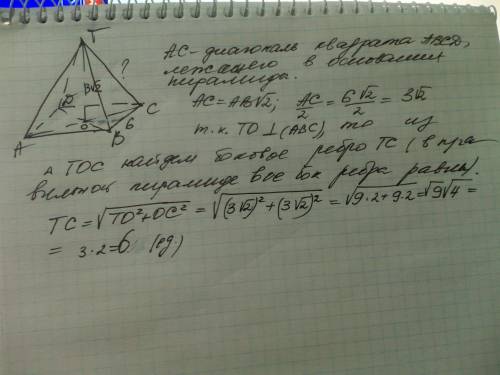 T
?
3√2
A
B
C
D
O
6
AC - диагональ квадрата ABCD,
лежащего в основании
пирамиды.
AC = AB√2; AC/2 = 6√2/2 = 3√2
т.к. TO ⊥ (ABC), то из
Δ TOC найдем боковое ребро TC (в пра
вильной пирамиде все бок ребра равны).
TC = √TO²+OC² = √(3√2)²+(3√2)² = √9·2+9·2 = √9√4 =
= 3·2=6 (ед.)